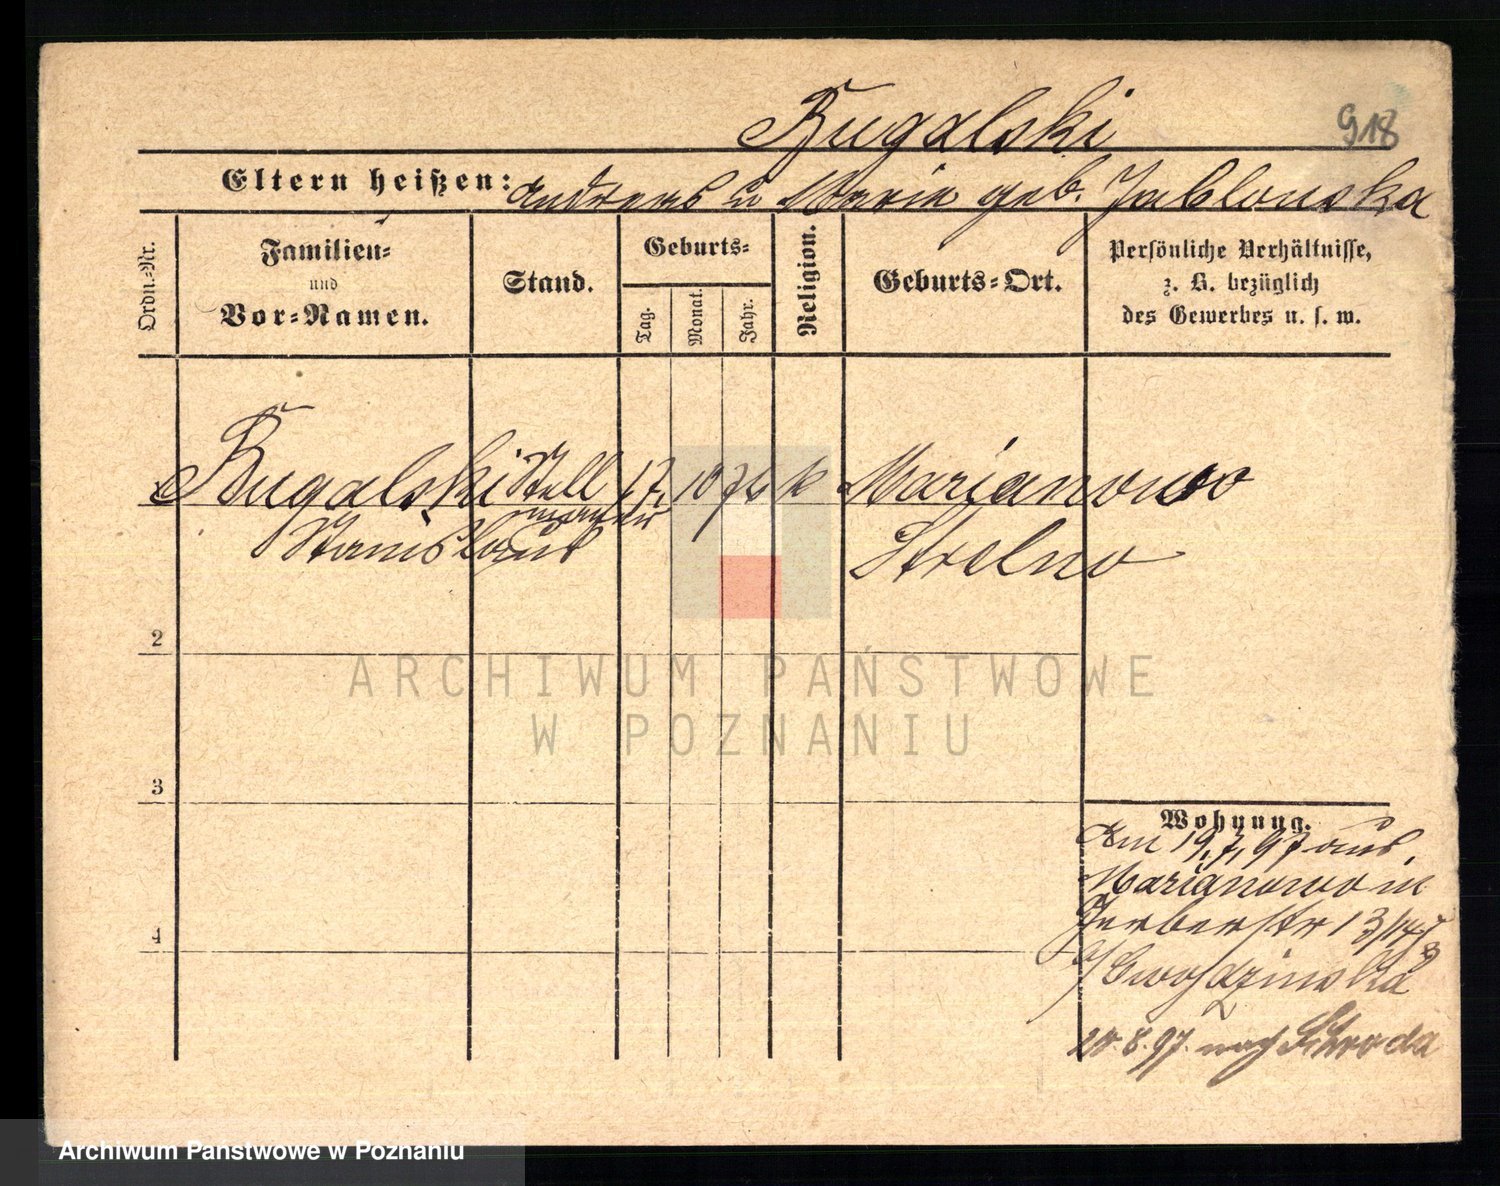 Bugalski
918
Eltern heißen: Andreas u Marie geb. Jablonska
Ordn.-Nr.
Familien-
und
Vor-Namen.
Stand.
Geburts-
Tag.
Monat.
Jahr.
Religion.
Geburts-Ort.
Persönliche Verhältnisse,
z. B. bezüglich
des Gewerbes u. s. w.
Bugalski
Stanislaus
Stell
macher
17 10 76 k
Marianowo
Strelno
2
3
4
Wohnung.
Am 19.7.97 aus
Marianowo in
Gerberstr 13/14
b/
20.8.97 nach Schroda
ARCHIWUM PAŃSTWOWE
W POZNANIU
Archiwum Państwowe w Poznaniu